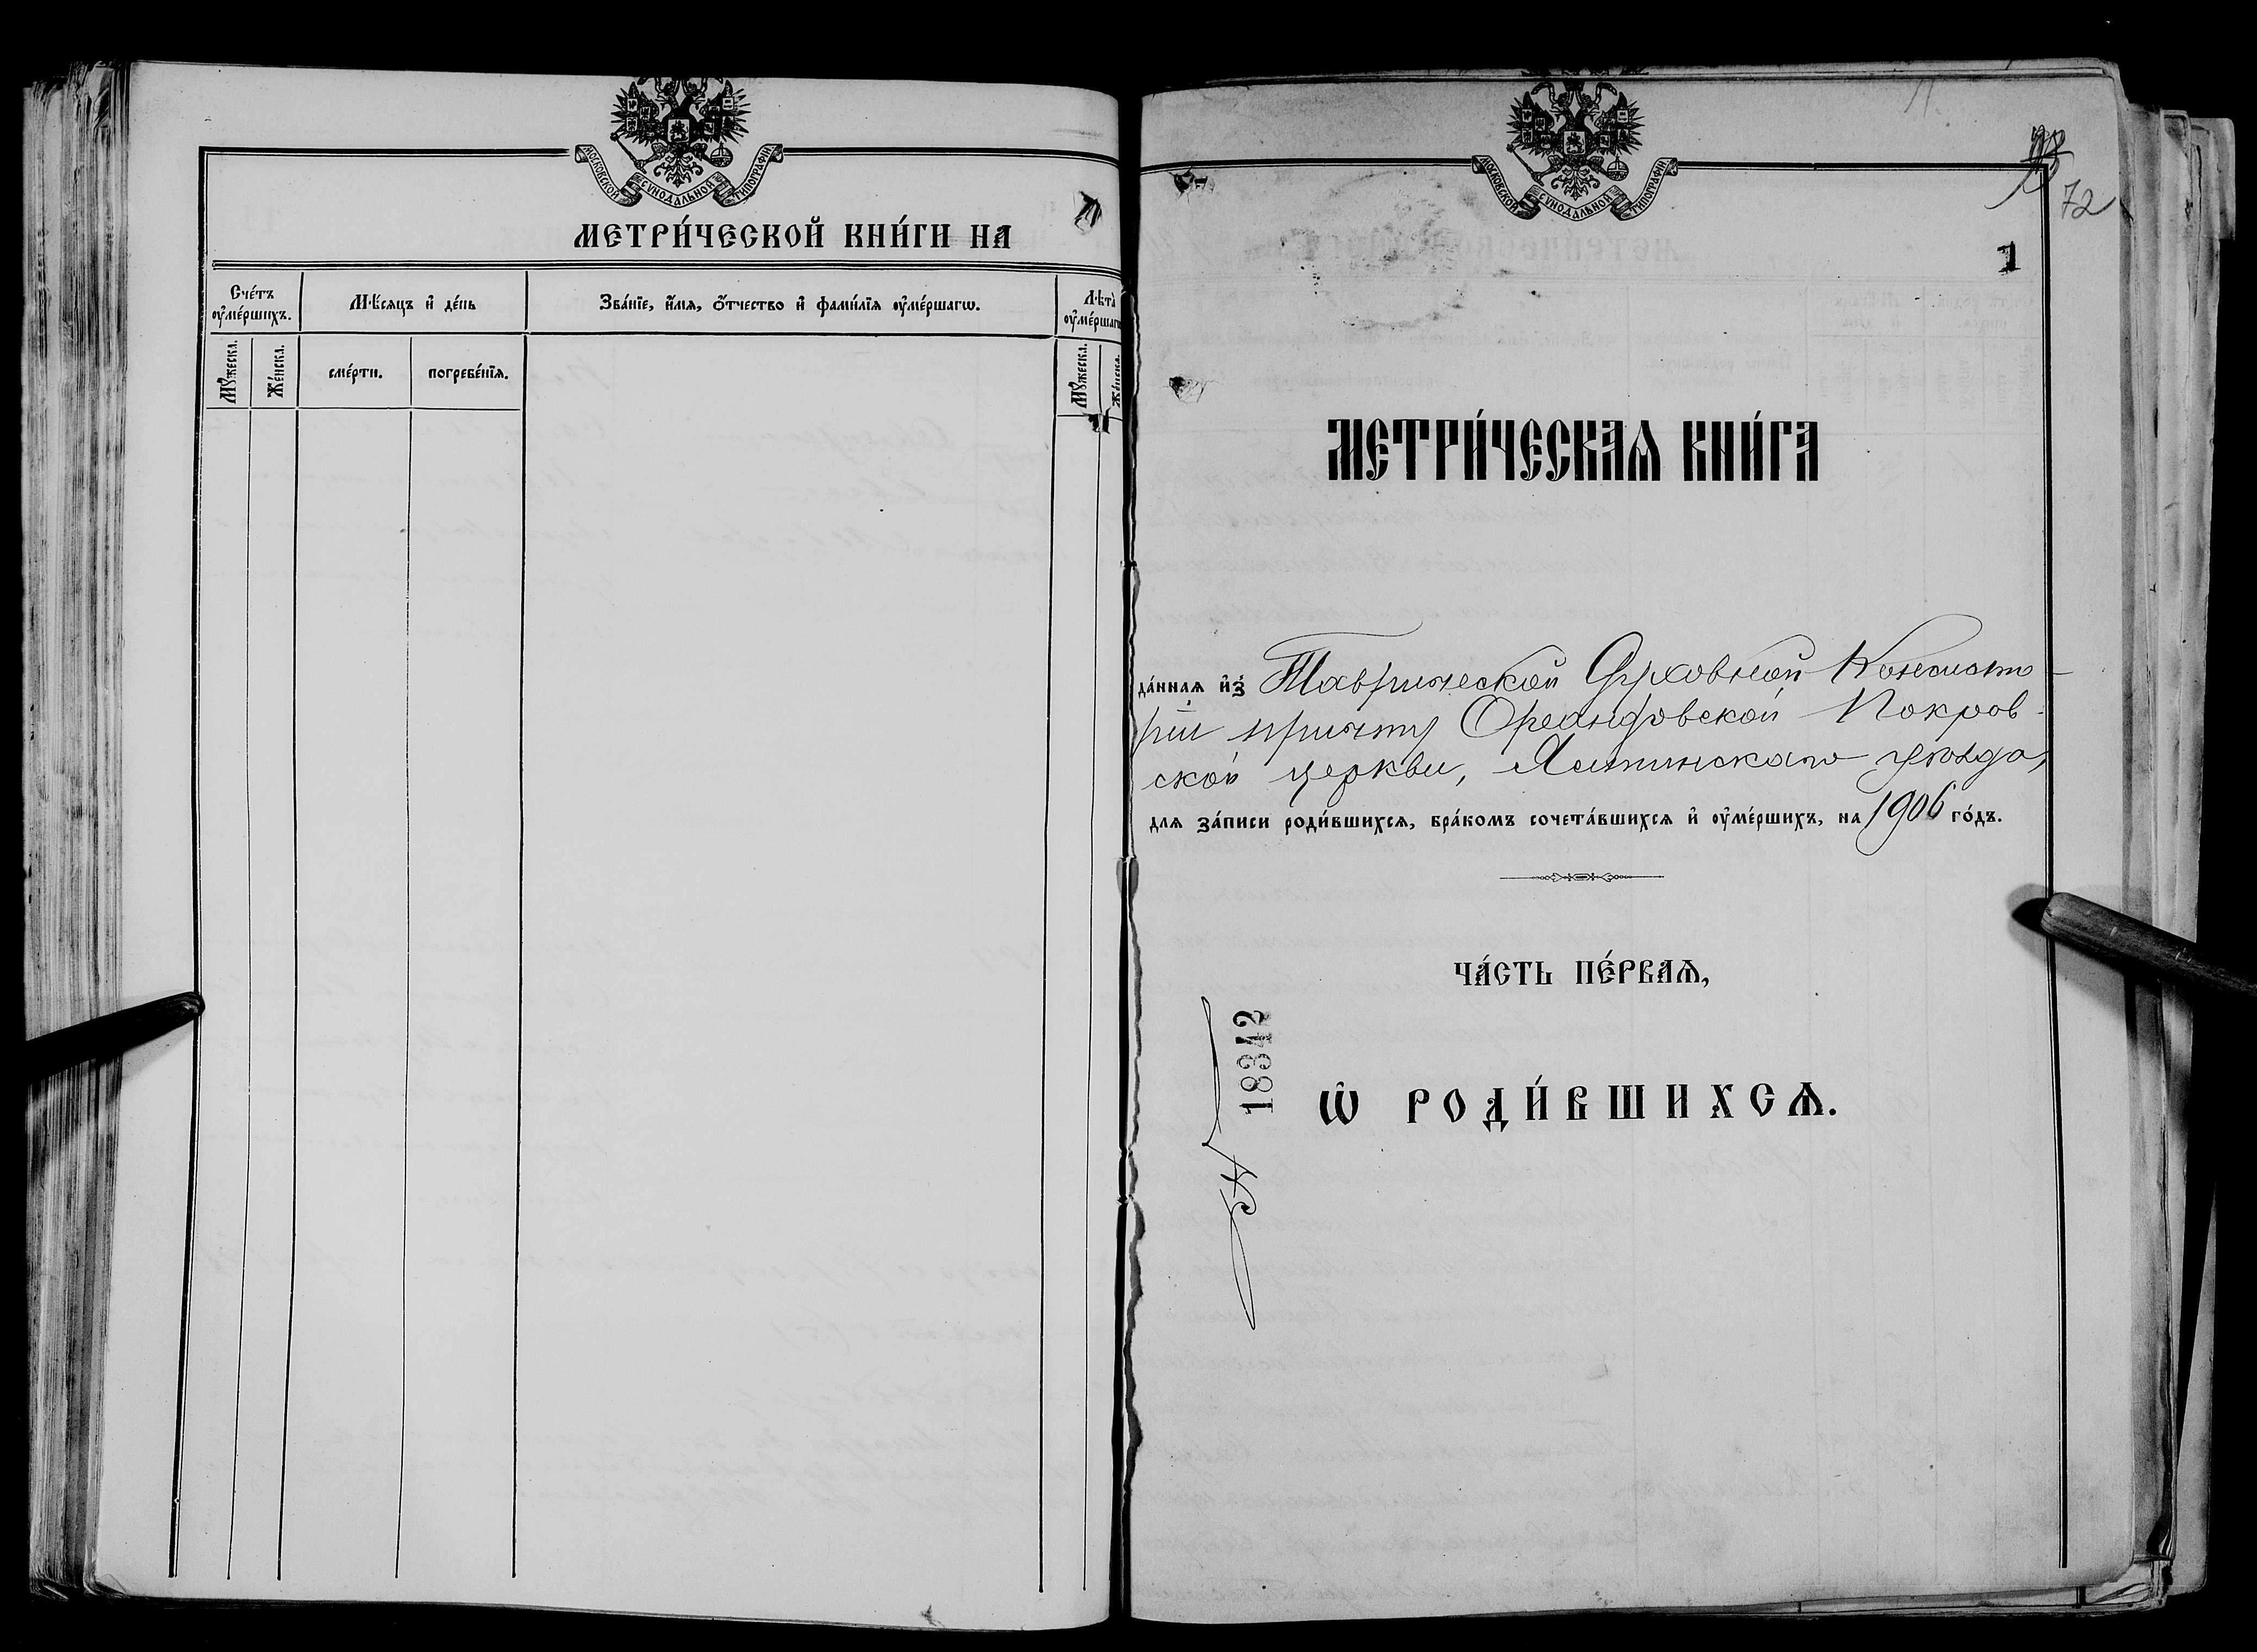 МОСКОВСКОЙ СѴНОДАЛЬНОЙ ТИПОГРАФІИ
МЕТРИ́ЧЕСКОЙ КНИ́ГИ НА
Сче́тъ
ᲂу҆ме́ршихъ.
Мѣ́сяцъ и҆ де́нь
Зва́нїе, и҆́мѧ, ѻ҆́тчество и҆ фами́лїѧ ᲂу҆ме́ршагѡ.
Лѣ́та
ᲂу҆ме́ршагѡ
Мꙋ́жеска.
Же́нска.
сме́рти.
погребе́нїѧ.
Мꙋ́жеска.
Же́нска.
МОСКОВСКОЙ СѴНОДАЛЬНОЙ ТИПОГРАФІИ
72
1
МЕТРИ́ЧЕСКАѦ КНИ́ГА
да́ннаѧ и҆з̾ Таврической Духовной Консисто-
ріи причту Ореандовской Покров-
ской церкви, Ялтинскаго уѣзда,
длѧ за́писи роди́вшихсѧ, бра́комъ сочета́вшихсѧ и҆ ᲂу҆ме́ршихъ, на 1906 го́дъ.
ЧА́СТЬ ПЕ́РВАѦ,
18342
Ѽ РОДИ́ВШИХСѦ.